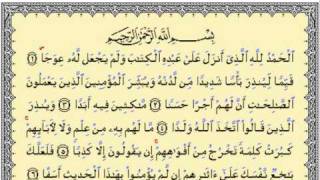 بِسْمِ ٱللَّهِ ٱلرَّحْمَٰنِ ٱلرَّحِيمِ
ٱلْحَمْدُ لِلَّهِ ٱلَّذِىٓ أَنزَلَ عَلَىٰ عَبْدِهِ ٱلْكِتَٰبَ وَلَمْ يَجْعَل لَّهُۥ عِوَجَا ۜ ١
قَيِّمًا لِّيُنذِرَ بَأْسًا شَدِيدًا مِّن لَّدُنْهُ وَيُبَشِّرَ ٱلْمُؤْمِنِينَ ٱلَّذِينَ يَعْمَلُونَ
ٱلصَّٰلِحَٰتِ أَنَّ لَهُمْ أَجْرًا حَسَنًا ٢ مَّٰكِثِينَ فِيهِ أَبَدًا ٣ وَيُنذِرَ
ٱلَّذِينَ قَالُوا۟ ٱتَّخَذَ ٱللَّهُ وَلَدًا ٤ مَّا لَهُم بِهِۦ مِنْ عِلْمٍ وَلَا لِءَابَآئِهِمْ ۚ
كَبُرَتْ كَلِمَةً تَخْرُجُ مِنْ أَفْوَٰهِهِمْ ۚ إِن يَقُولُونَ إِلَّا كَذِبًا ٥ فَلَعَلَّكَ
بَٰخِعٌ نَّفْسَكَ عَلَىٰٓ ءَاثَٰرِهِمْ إِن لَّمْ يُؤْمِنُوا۟ بِهَٰذَا ٱلْحَدِيثِ أَسَفًا ٦